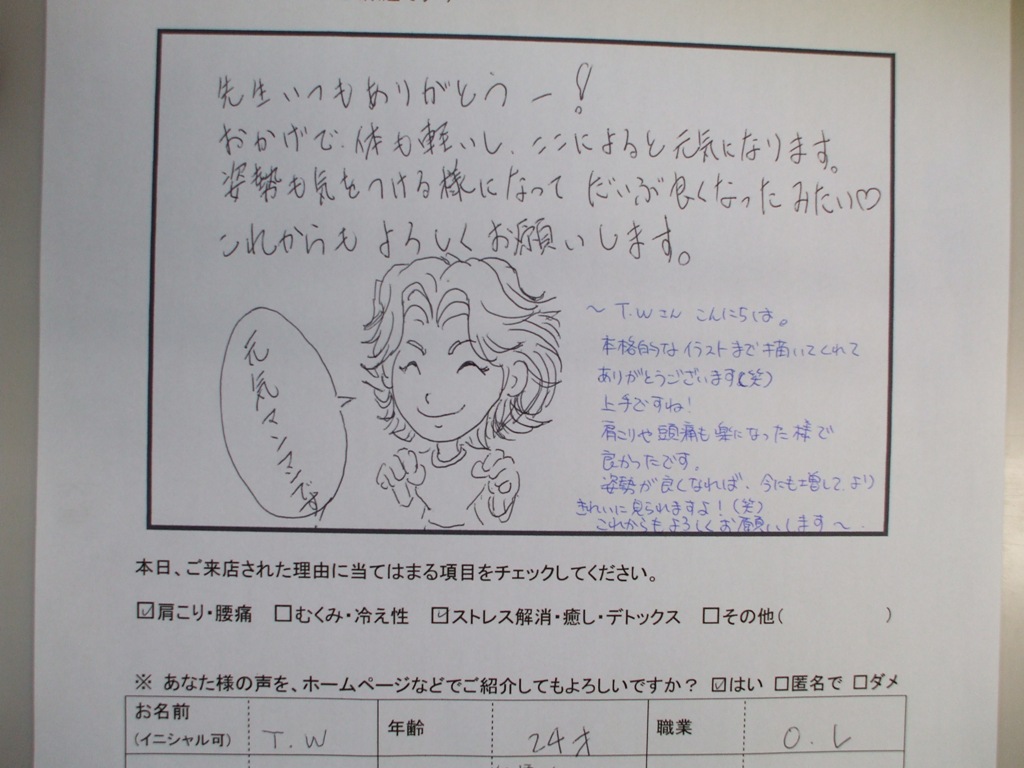 先生いつもありがとうー!
おかげで、体も軽いし、ここによると元気になります。
姿勢も気をつける様になって だいぶ良くなったみたい♡
これからも よろしくお願いします。
元気マンマンです
～ T.Wさん こんにちは。
本格的なイラストまで描いてくれて
ありがとうございます(笑)
上手ですね!
肩こりや頭痛も楽になった様で
良かったです。
姿勢が良くなれば、今にも増して、より
きれいに見られますよ!(笑)
これからも、よろしくお願いします～
本日、ご来店された理由に当てはまる項目をチェックしてください。
☑肩こり・腰痛 □むくみ・冷え性 ☑ストレス解消・癒し・デトックス □その他( )
※ あなた様の声を、ホームページなどでご紹介してもよろしいですか? ☑はい □匿名で □ダメ
お名前
(イニシャル可) T.W 年齢 24才 職業 O.L